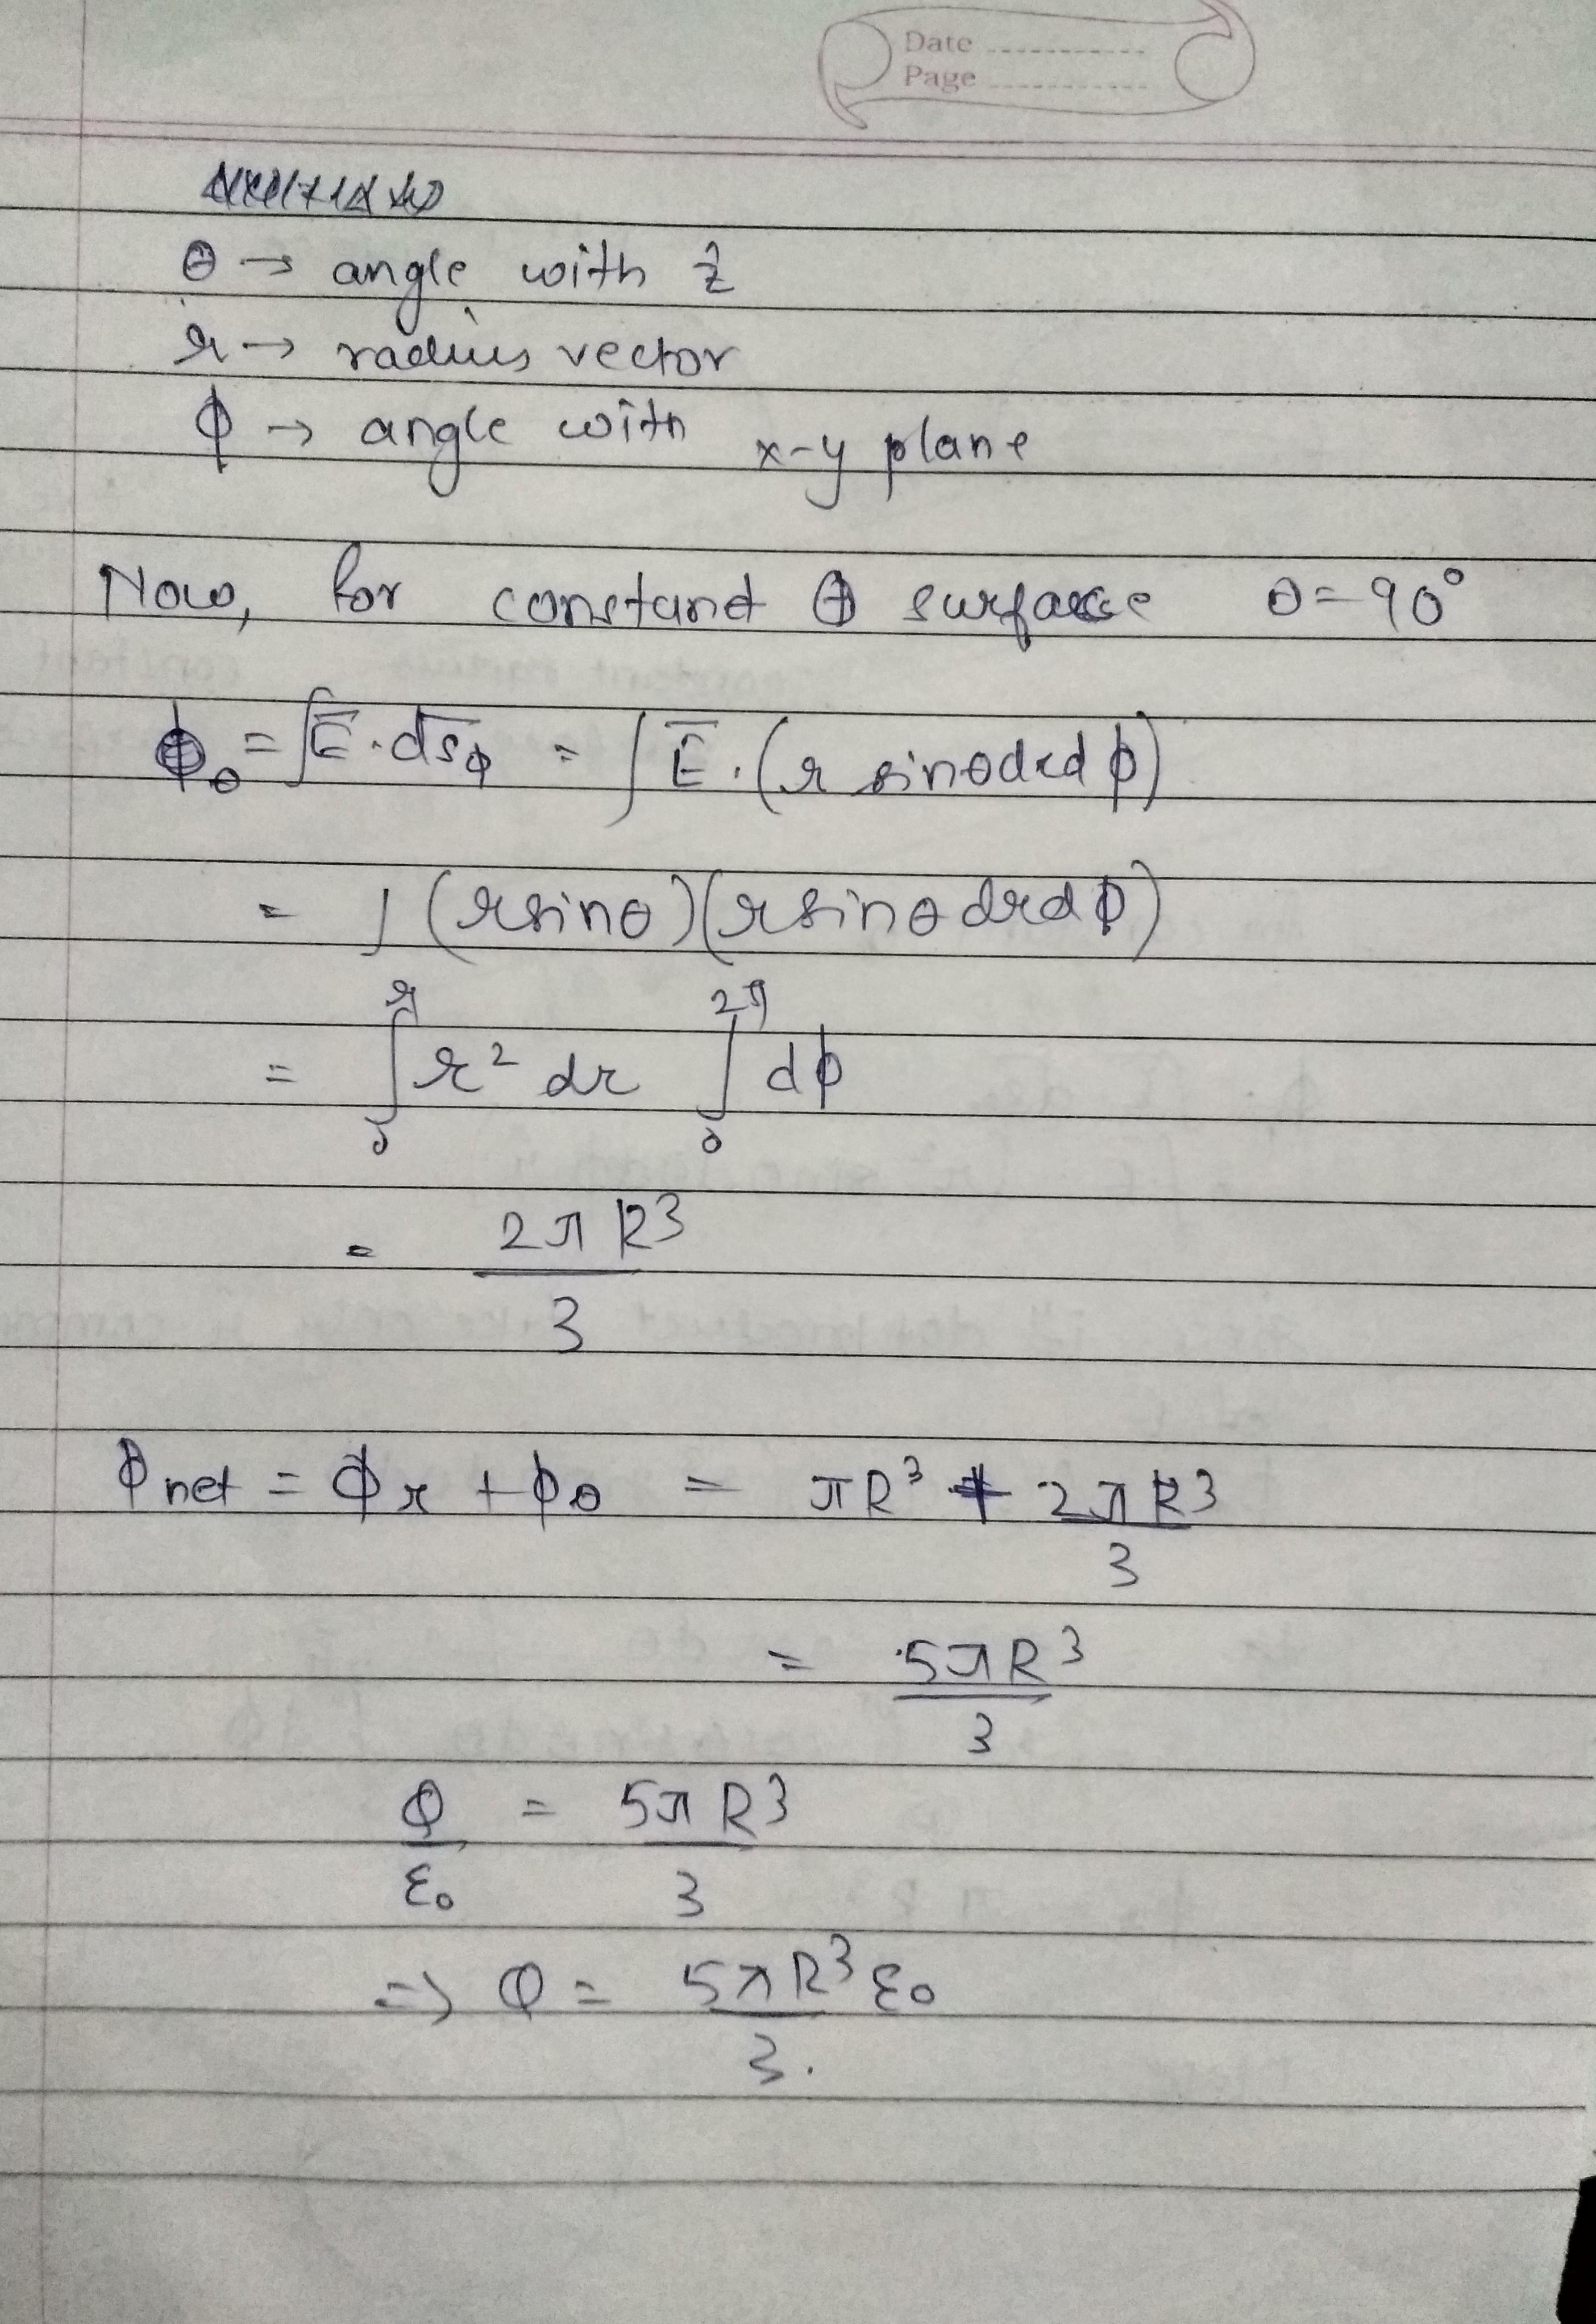 Date
Page
θ → angle with ẑ
r → radius vector
ϕ → angle with x-y plane
Now, for constant θ surface θ = 90°
ϕ_θ = ∫E̅.ds̅_ϕ = ∫E̅.(r sinθdrdϕ)
= ∫(rsinθ)(rsinθdrdϕ)
= ∫₀^r r² dr ∫₀^2π dϕ
= 2πR³/3
ϕ net = ϕ_r + ϕ_θ = πR³ + 2πR³/3
= 5πR³/3
Q/ε₀ = 5πR³/3
=> Q = 5πR³ε₀/3.